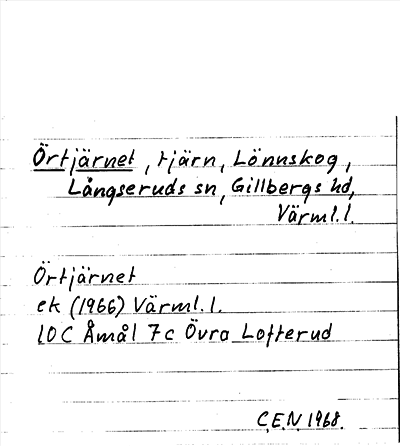 Örtjärnet, tjärn, Lönnskog,
Långseruds sn, Gillbergs hd,
Värml.l.
Örtjärnet
ek (1966) Värml.l.
10C Åmål 7c Övra Lofterud
C.E.N. 1968.